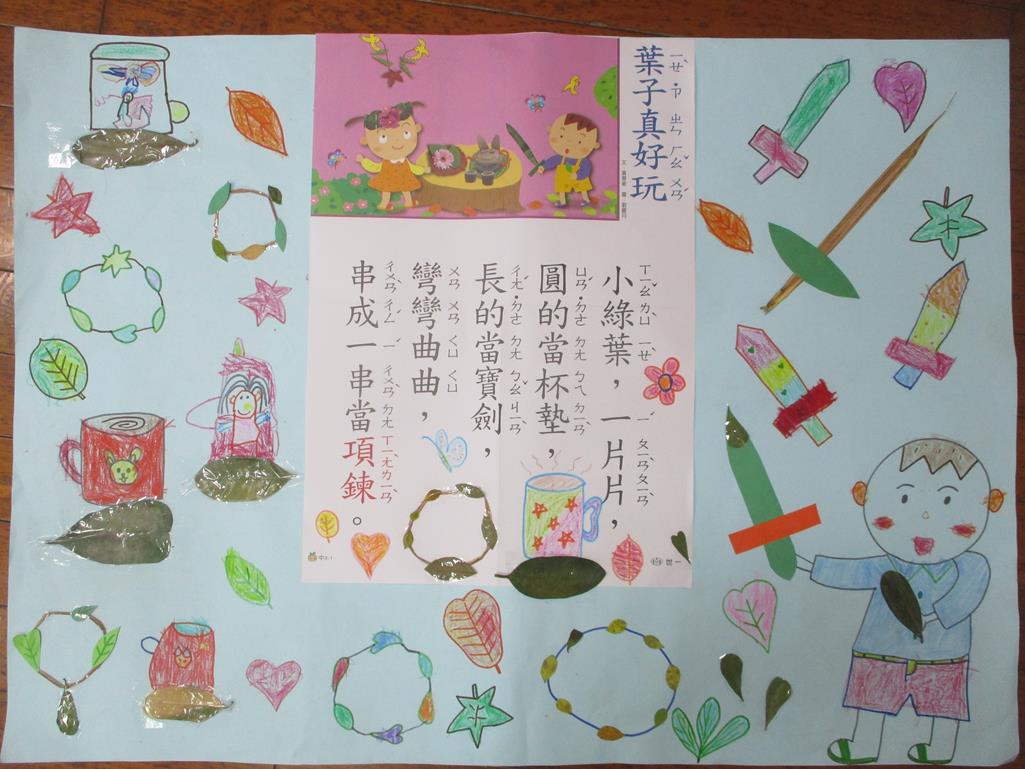 葉子真好玩
小綠葉，一片片，
圓的當杯墊，
長的當寶劍，
彎彎曲曲，
串成一串當項鍊。
世一